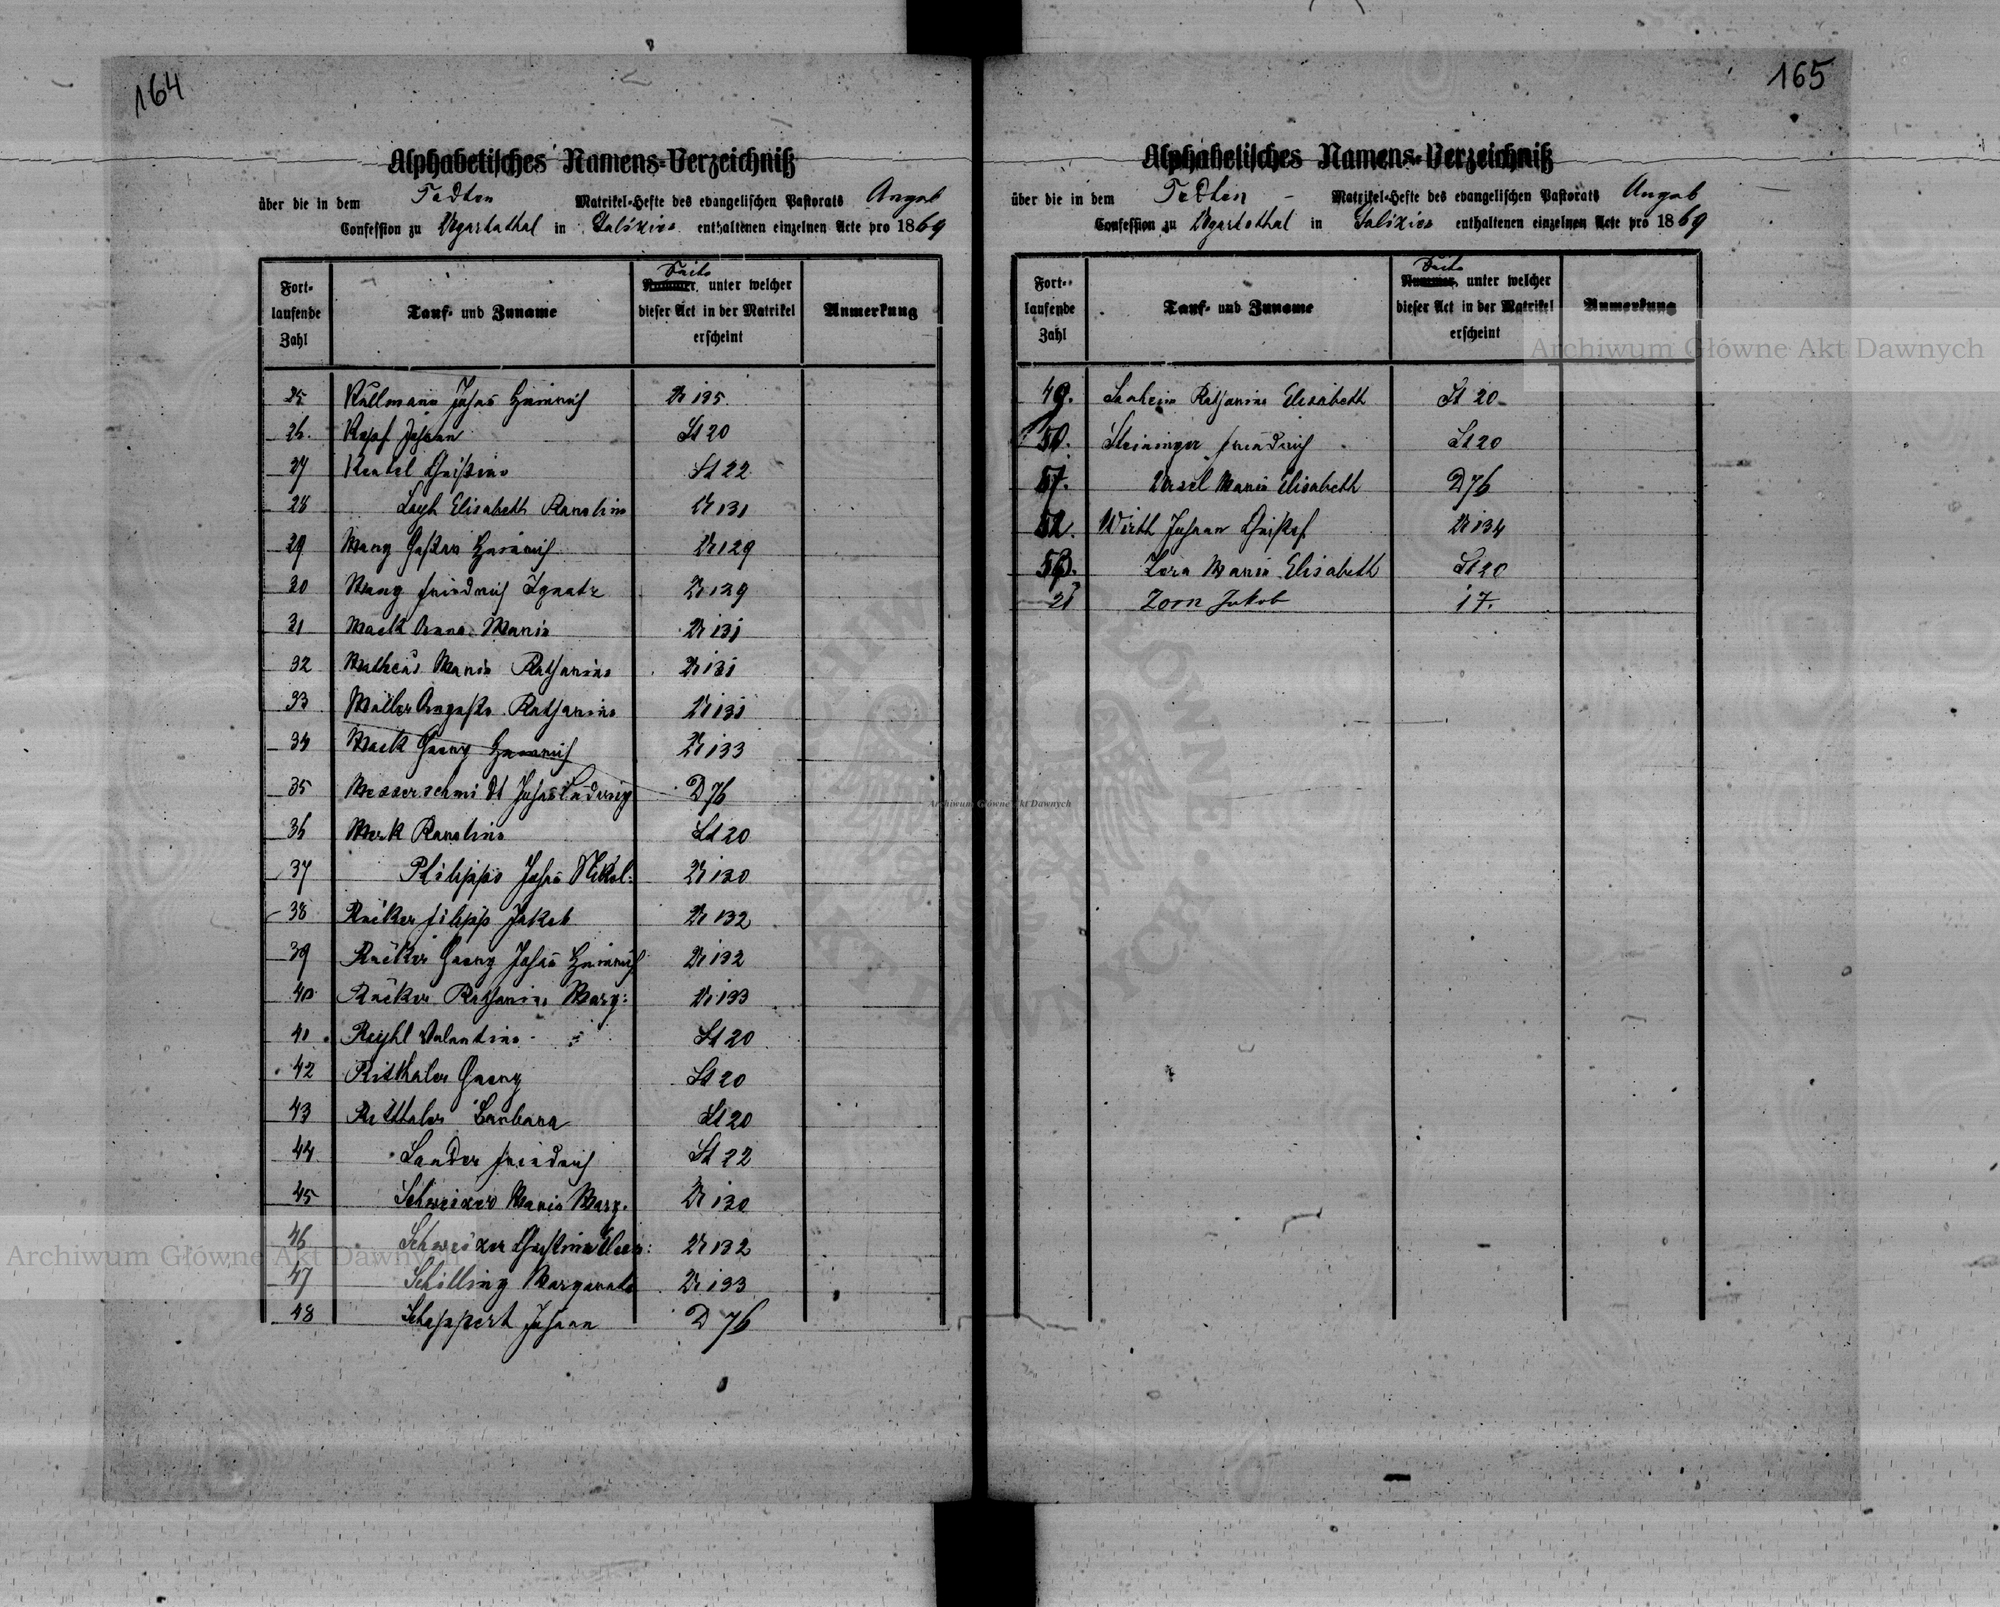 164
Alphabetisches Namens-Verzeichniß
über die in dem Todten Matrikel-Hefte des evangelischen Pastorats Augsb
Confession zu Ugartsthal in Galizien enthaltenen einzelnen Acte pro 1869
Fort-
laufende
Zahl
Tauf- und Zuname
Seite
Nummer, unter welcher
dieser Act in der Matrikel
erscheint
Anmerkung
25 Kullmann Johann Heinrich U 135
26. Kopf Johann St 20
27 Christine St 22
28 Elisabeth Karoline U 131
29 Mang Gustav Heinrich U 129
30 Mang Friedrich Ignatz U 129
31 Mack Anna Maria U 131
32 Matheis Maria Katharina U 131
33 Müller Augusta Katharina U 131
34 Mack Georg Heinrich U 133
35 Messerschmidt Johan Ludwig D 76
36 Merk Karoline St 20
37 Philipps Johan Nikol: U 130
38 Rücker Filipp Jakob U 132
39 Rücker Georg Johan Heinrich U 132
40 Rücker Katharina Marg: U 133
41 St 20
42 Ritthaler Georg St 20
43 Ritthaler Barbara St 20
44 Sander Friedrich St 22
45 Schweizer Maria Marg. U 130
46 Schweizer Christine U 132
47 Schilling Margareta U 133
48 Schappert Johann D 76
165
Alphabetisches Namens-Verzeichniß
über die in dem Todten Matrikel-Hefte des evangelischen Pastorats Augsb
Confession zu Ugartsthal in Galizien enthaltenen einzelnen Acte pro 1869
Fort-
laufende
Zahl
Tauf- und Zuname
Seite
Nummer, unter welcher
dieser Act in der Matrikel
erscheint
Anmerkung
49. Katharina Elisabeth St 20
50. Steininger Friedrich St 20
51. Maria Elisabeth D 76
52. Wirth Johann U 134
53. Maria Elisabeth St 20
21 Zorn Jakob 17.
Archiwum Główne Akt Dawnych
Archiwum Główne Akt Dawnych
Archiwum Główne Akt Dawnych